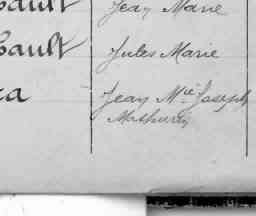 ault Jean Marie
Cault Jules Marie
ra Jean Mie Joseph
Mathurin